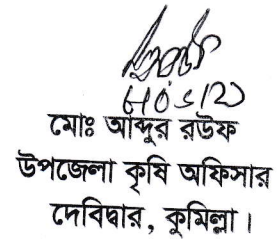 মোঃ আব্দুর রউফ
উপজেলা কৃষি অফিসার
দেবিদ্বার, কুমিল্লা।